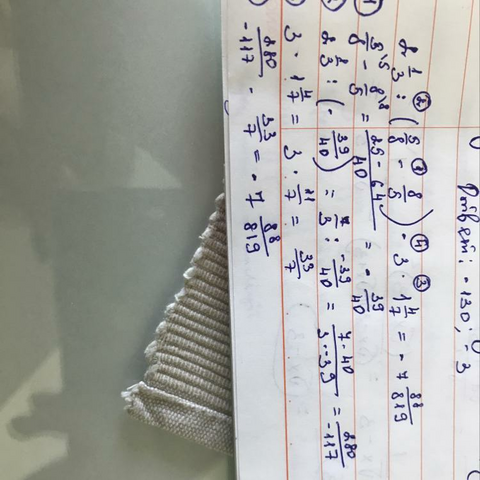 Ответ: -130; -3
2 1/3 : (5/8 - 8/5) - 3 · 1 4/7 = -7 88/819
1) 5/8 - 8/5 = (25-64)/40 = -39/40
2 1/3 : (-39/40) = 7/3 : -39/40 = (7·40)/(3·-39) = 280/-117
3 · 1 4/7 = 3 · 11/7 = 33/7
280/-117 - 33/7 = -7 88/819